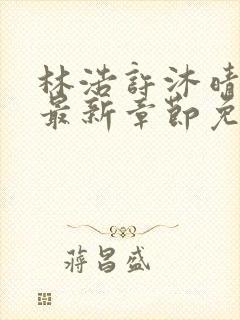 林浩許沐晴
最新章節免
蔣昌盛